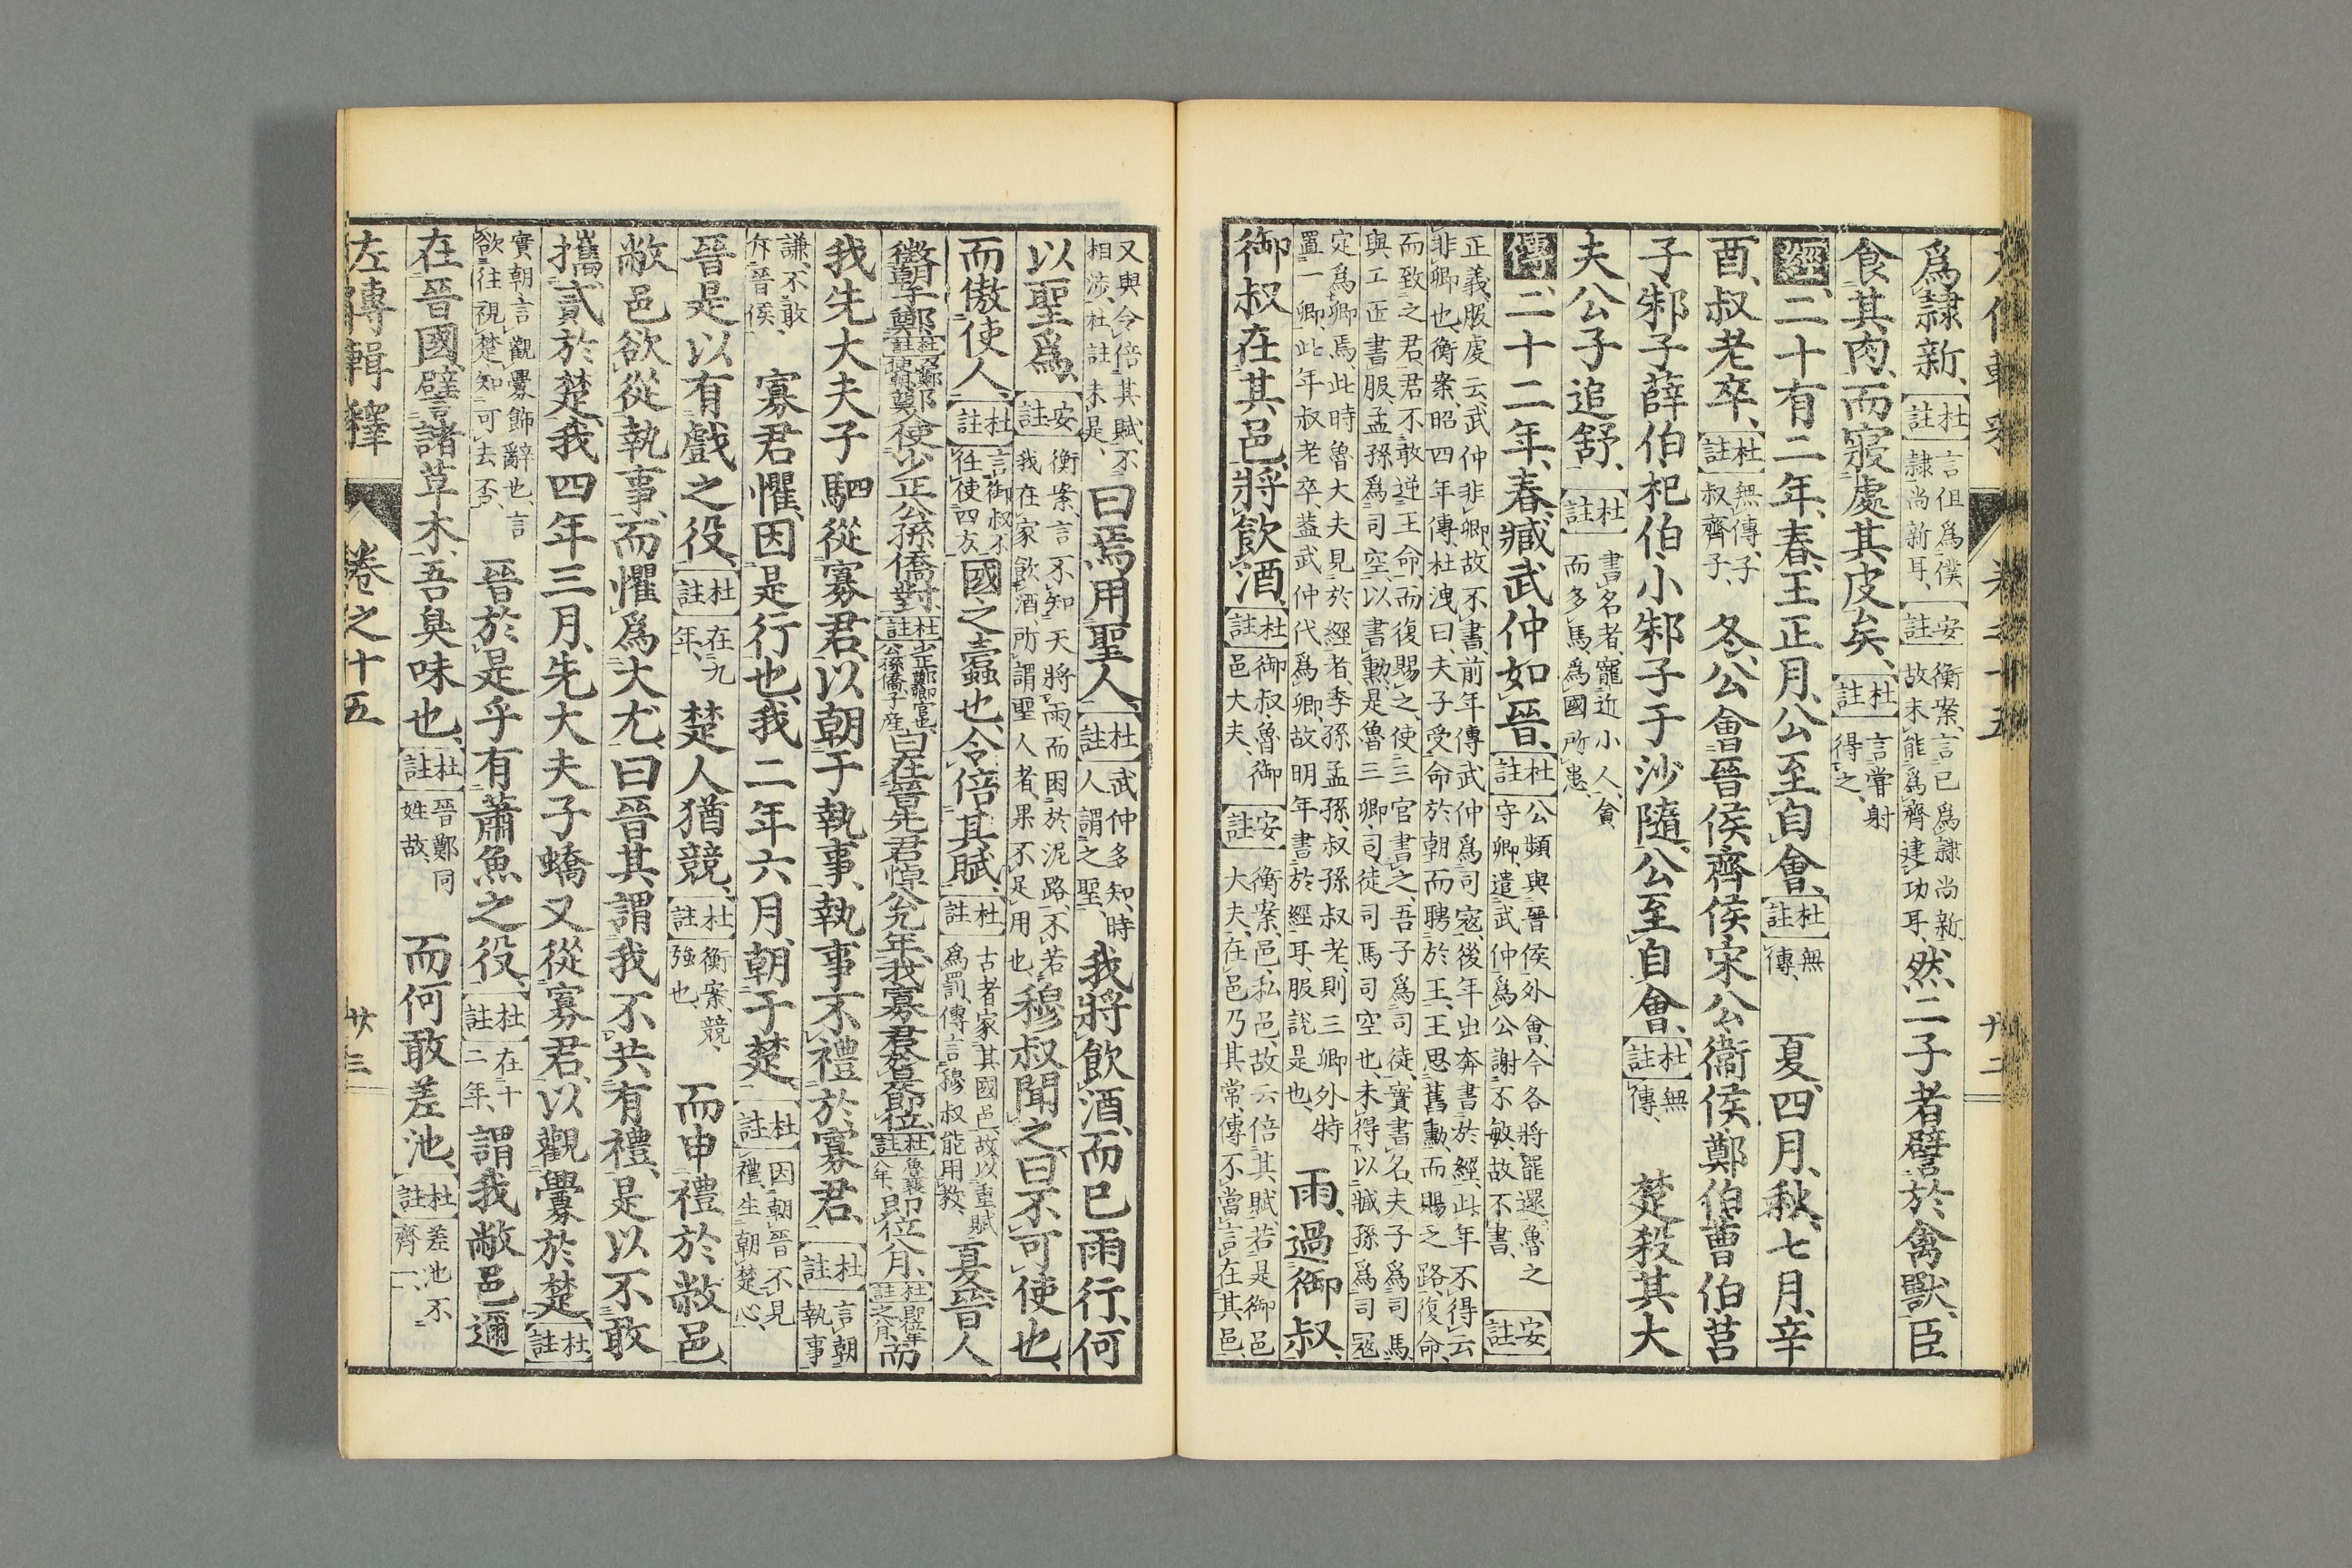 爲隸新、【杜註】言但爲僕隸尚新耳、【安註】衡案、言已爲隸尚新、故未能爲齊建功耳、然二子者譬於禽獸、臣
食其肉、而寢處其皮矣、【杜註】言嘗射得之、
經二十有二年、春、王正月、公至自會、【杜註】無傳、夏、四月、秋、七月、辛
酉、叔老卒、【杜註】無傳、子叔齊子、冬、公會晉侯齊侯宋公衞侯鄭伯曹伯莒
子邾子薛伯杞伯小邾子于沙隨、公至自會、【杜註】無傳、楚殺其大
夫公子追舒、【杜註】書名者、寵近小人、貪而多馬、爲國所患、
傳二十二年、春、臧武仲如晉、【杜註】公頻與晉侯外會、今各將罷還、魯之守卿、遣武仲爲公謝不敏、故不書、【安註】
正義、服虔云、武仲非卿、故不書、前年傳武仲爲司寇、後年出奔書於經、此年不得云
非卿也、衡案、昭四年傳杜洩曰、夫子受命於朝而聘於王、王思舊勳、而賜之路、復命
而致之君、君不敢逆王命、而復賜之、使三官書之、吾子爲司徒、實書名、夫子爲司馬、
與工匠書服、孟孫爲司空、以書勳、是魯三卿、司徒司馬司空也、未得以臧孫爲司寇
定爲卿焉、此時魯大夫見於經者、季孫孟孫、叔孫叔老、則三卿外特
置一卿、此年叔老卒、蓋武仲代爲卿、故明年書於經耳、服說是也、雨、過御叔、
御叔在其邑、將飲酒、【杜註】御叔、魯御邑大夫、【安註】衡案、邑、私邑、故云倍其賦、若是御邑大夫、在邑乃其常、傳不當言在其邑、
又與令倍其賦不
相涉、杜註未是、曰焉用聖人、【杜註】武仲多知、時人謂之聖、我將飲酒、而已雨行、何
以聖爲、【安註】衡案、言不知天將雨、而困於泥路、不若我在家飲酒、所謂聖人者、果不足用也、穆叔聞之曰、不可使也、
而傲使人、【杜註】言御叔不任使四方、國之蠹也、令倍其賦、【杜註】古者家其國邑、故以重賦爲罰、傳言穆叔能用教、夏、晉人
徵朝于鄭、鄭人使少正公孫僑對、【杜註】少正、鄭卿官也、公孫僑、子產、曰、在晉先君悼公九年、我寡君於是卽位、【杜註】魯襄八年、卽位八月、【杜註】卽位年之八月、而
我先大夫子駟從寡君、以朝于執事、執事不禮於寡君、【杜註】言朝執事
謙、不敢斥晉侯、寡君懼、因是行也、我二年六月、朝于楚、【杜註】因朝晉不見禮、生朝楚心、
晉是以有戲之役、【杜註】在九年、楚人猶競、【杜註】衡案、競、強也、而申禮於敝邑、
敝邑欲從執事、而懼爲大尤、曰晉其謂我不共有禮、是以不敢
攜貳於楚、我四年三月、先大夫子蟜又從寡君、以觀釁於楚、【杜註】
實朝、言觀釁飾辭也、言欲往視楚、知可去否、晉於是乎有蕭魚之役、【杜註】在十二年、謂我敝邑邇
在晉國、譬諸草木、吾臭味也、【杜註】晉鄭同姓故、而何敢差池、【杜註】差池、不齊一、
左傳輯釋 卷之十五 廿三